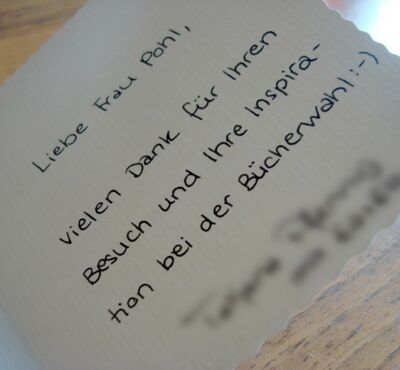 Liebe Frau Pohl,
vielen Dank für Ihren
Besuch und Ihre Inspira-
tion bei der Bücherwahl :-)